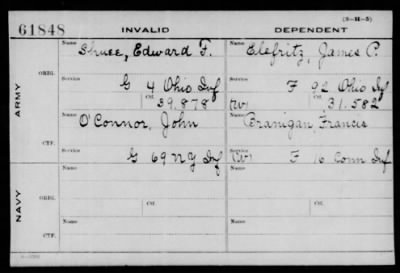 (3-H-5)
61848 INVALID DEPENDENT
Name Name
Shuee, Edward F. Elefritz, James P.
ORIG.
Service Service
G 4 Ohio Inf F 92 Ohio Inf
Ctf. Ctf.
39.878 (W) 31.582
ARMY
Name Name
O'Connor, John Branigan, Francis
CTF.
Service Service
G 69 N Y Inf (W) F 10 Conn Inf
Name Name
ORIG.
Service Ctf. Service Ctf.
NAVY
Name Name
CTF.
Service Service